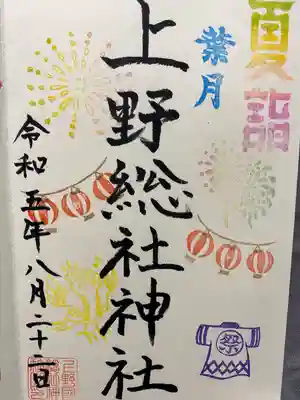 夏詣
葉月
上野総社神社
令和五年八月二十二日
祭